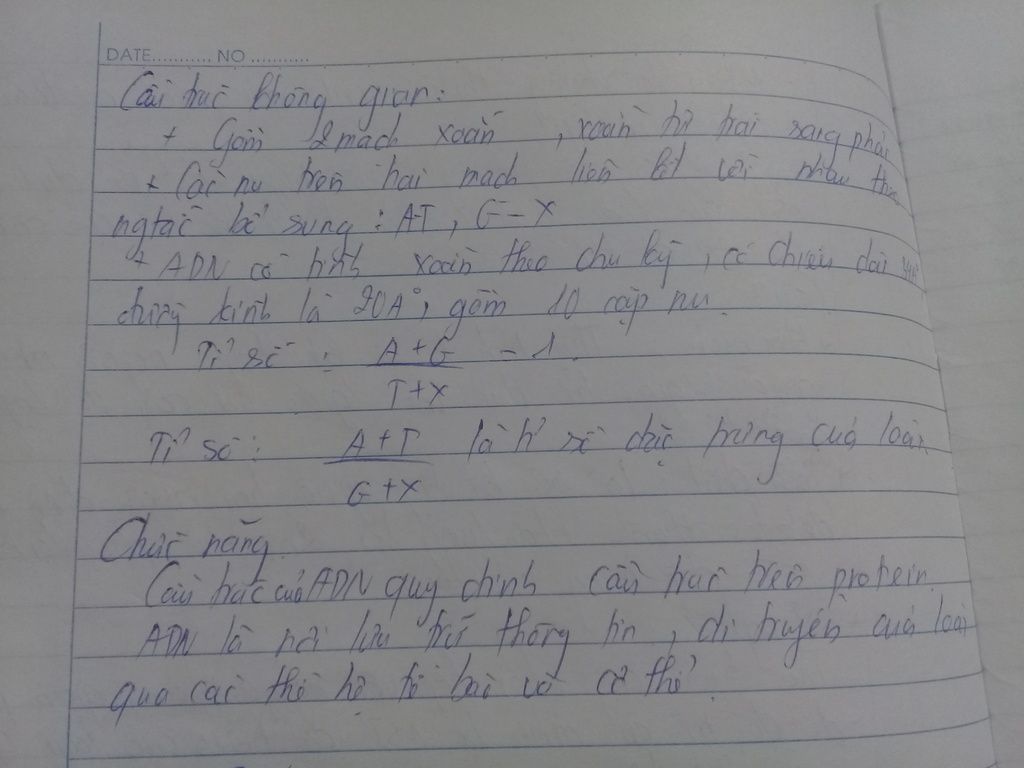 DATE........... NO ...........
Cấu trúc không gian:
+ Gồm 2 mạch xoắn, xoắn từ trái sang phải
+ Các nu trên hai mạch liên kết với nhau theo
ng tắc bổ sung: A-T, G-X
+ ADN có tính xoắn theo chu kỳ, có chiều dài
đường kính là 20A°, gồm 10 cặp nu.
Tỉ số: A+G / T+X = 1.
Tỉ số: A+T / G+X là tỉ số đặc trưng của loài
Chức năng.
Cấu trúc của ADN quy định cấu trúc trên protein.
ADN là nơi lưu trữ thông tin, di truyền của loài
qua các thế hệ tế bào và cơ thể.